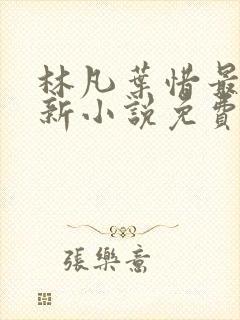 林凡葉惜最
新小說免費
張樂意